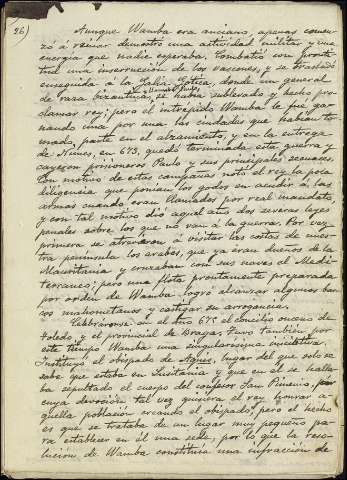 26)
Aunque Wamba era anciano, apenas comen-
zó á reinar demostró una actividad militar y una
energía que nadie esperaba. Combatió con pronti-
tud una insurrección de los vascones, y se trasladó
enseguida á la Galia Gótica, donde un general
de raza bizantina, llamado Paulo, se había sublevado y hecho pro-
clamar rey; pero el intrépido Wamba le fué ga-
nando una por una las ciudades que habían to-
mado parte en el alzamiento, y en la entrega
de Nimes, en 673, quedó terminada esta guerra y
cayeron prisioneros Paulo y sus principales secuaces.
Con motivo de estas campañas notó el rey la poca
diligencia que ponían los godos en acudir á las
armas cuando eran llamados por real mandato,
y con tal motivo dió aquel año dos severas leyes
penales sobre los que no van á la guerra. Por vez
primera se atrevieron á visitar las costas de nues-
tra península los árabes, que ya eran dueños de la
Mauritania y cruzaban con sus naves el Medi-
terráneo; pero una flota prontamente preparada
por orden de Wamba logró alcanzar algunos bar-
cos mahometanos y castigar su arrogancia.
Celebráronse en el año 675 el concilio onceno de
Toledo y el provincial de Braga. Tuvo también por
este tiempo Wamba una singularísima iniciativa.
Instituyó el obispado de Aquis, lugar del que solo se
sabe que estaba en Lusitania y que en él se halla-
ba sepultado el cuerpo del confesor San Pimenio, por
cuya devoción tal vez quisiera el rey honrar a-
quella población creando el obispado; pero el hecho
es que se trataba de un lugar muy pequeño pa-
ra establecer en él una sede, por lo que la reso-
lución de Wamba constituía una infracción de